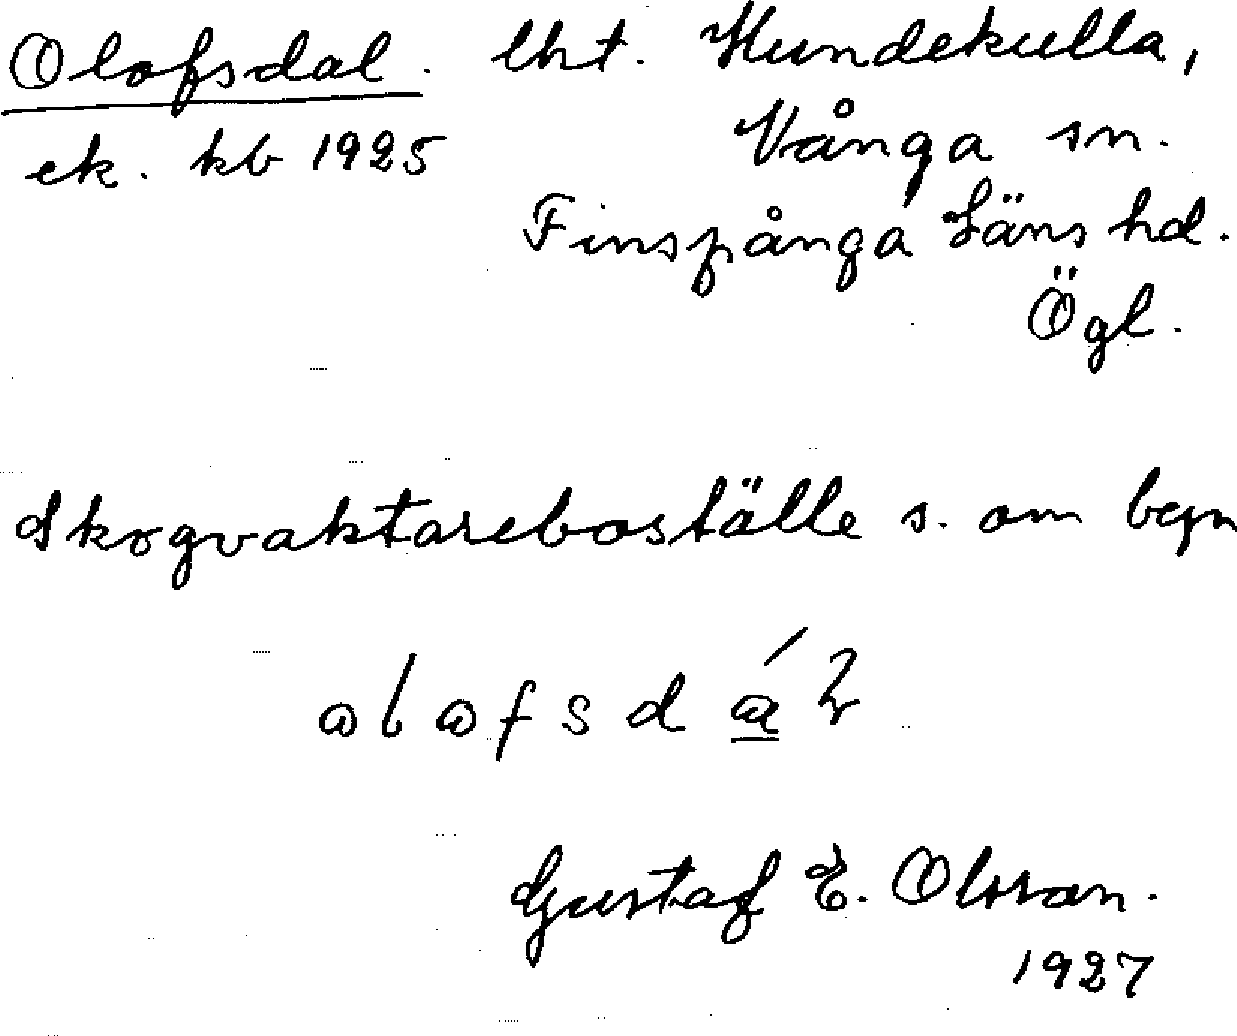 Olofsdal. lht. Hundekulla,
ek. kb 1925 Vånga sn.
Finspånga Läns hd.
Ögl.
Skogvaktareboställe s. om byn
Gustaf E. Olsson.
1927